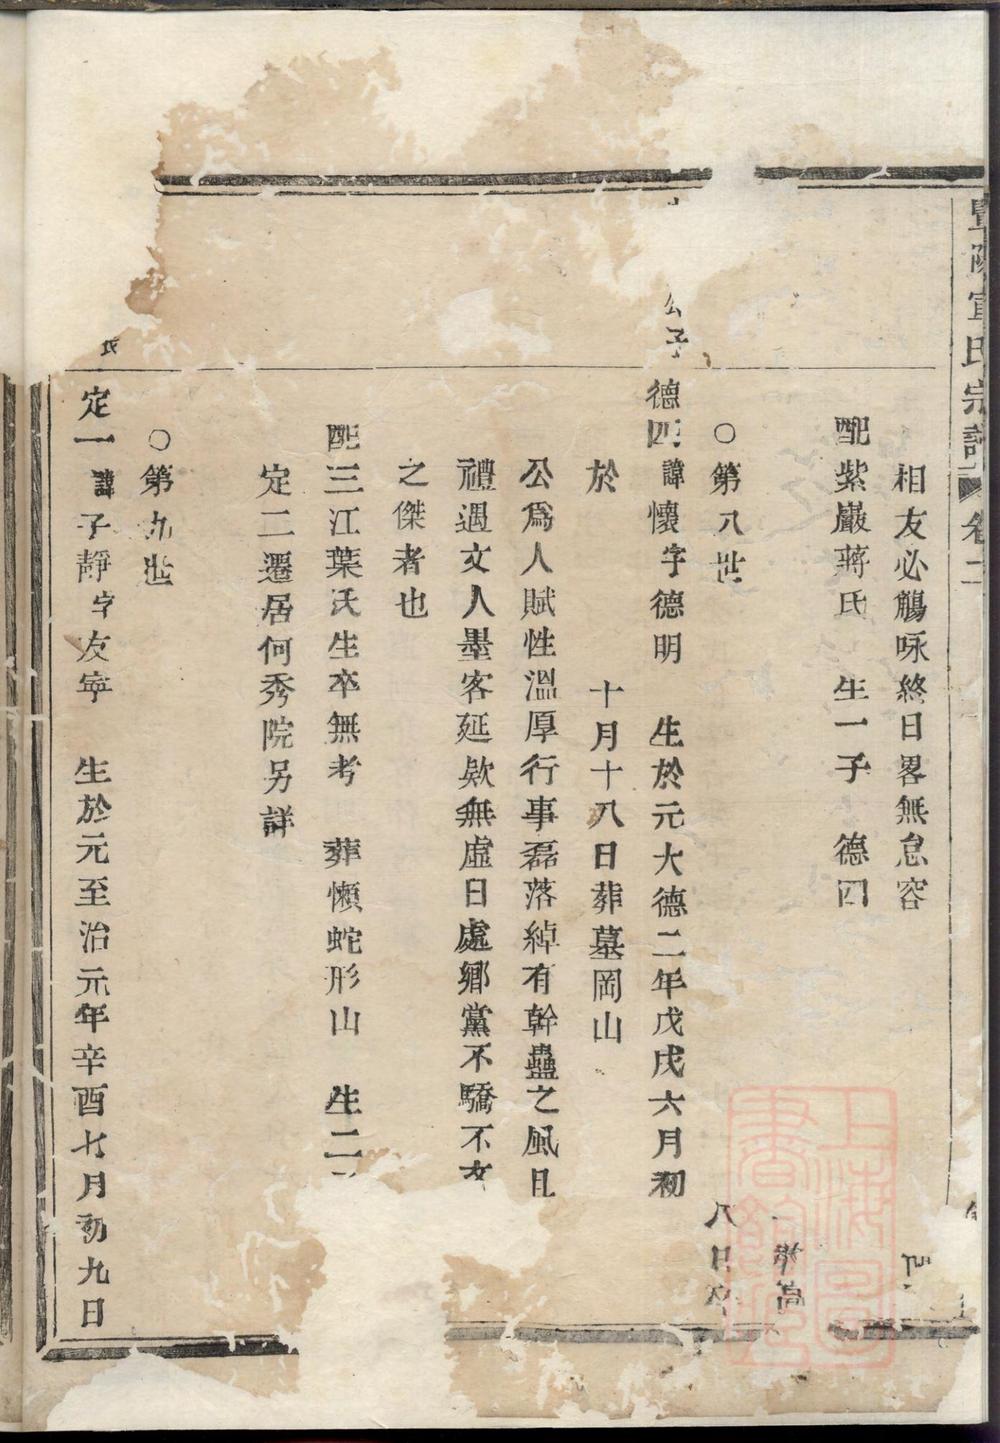 暨陽宣氏宗譜 卷二
相友必觴咏終日畧無怠容
配紫巖蔣氏 生一子 德四
○第八世
公子
德四諱懷字德明 生於元大德二年戊戌六月初
八日卒
於 十月十八日葬墓岡山
公爲人賦性溫厚行事磊落綽有幹蠱之風且
禮遇文人墨客延欵無虛日處鄉黨不驕不
之傑者也
配三江葉氏生卒無考 葬懶蛇形山 生二
定二遷居何秀院另詳
○第九世
定一諱子靜字友寧 生於元至治元年辛酉七月初九日
上海圖書館藏